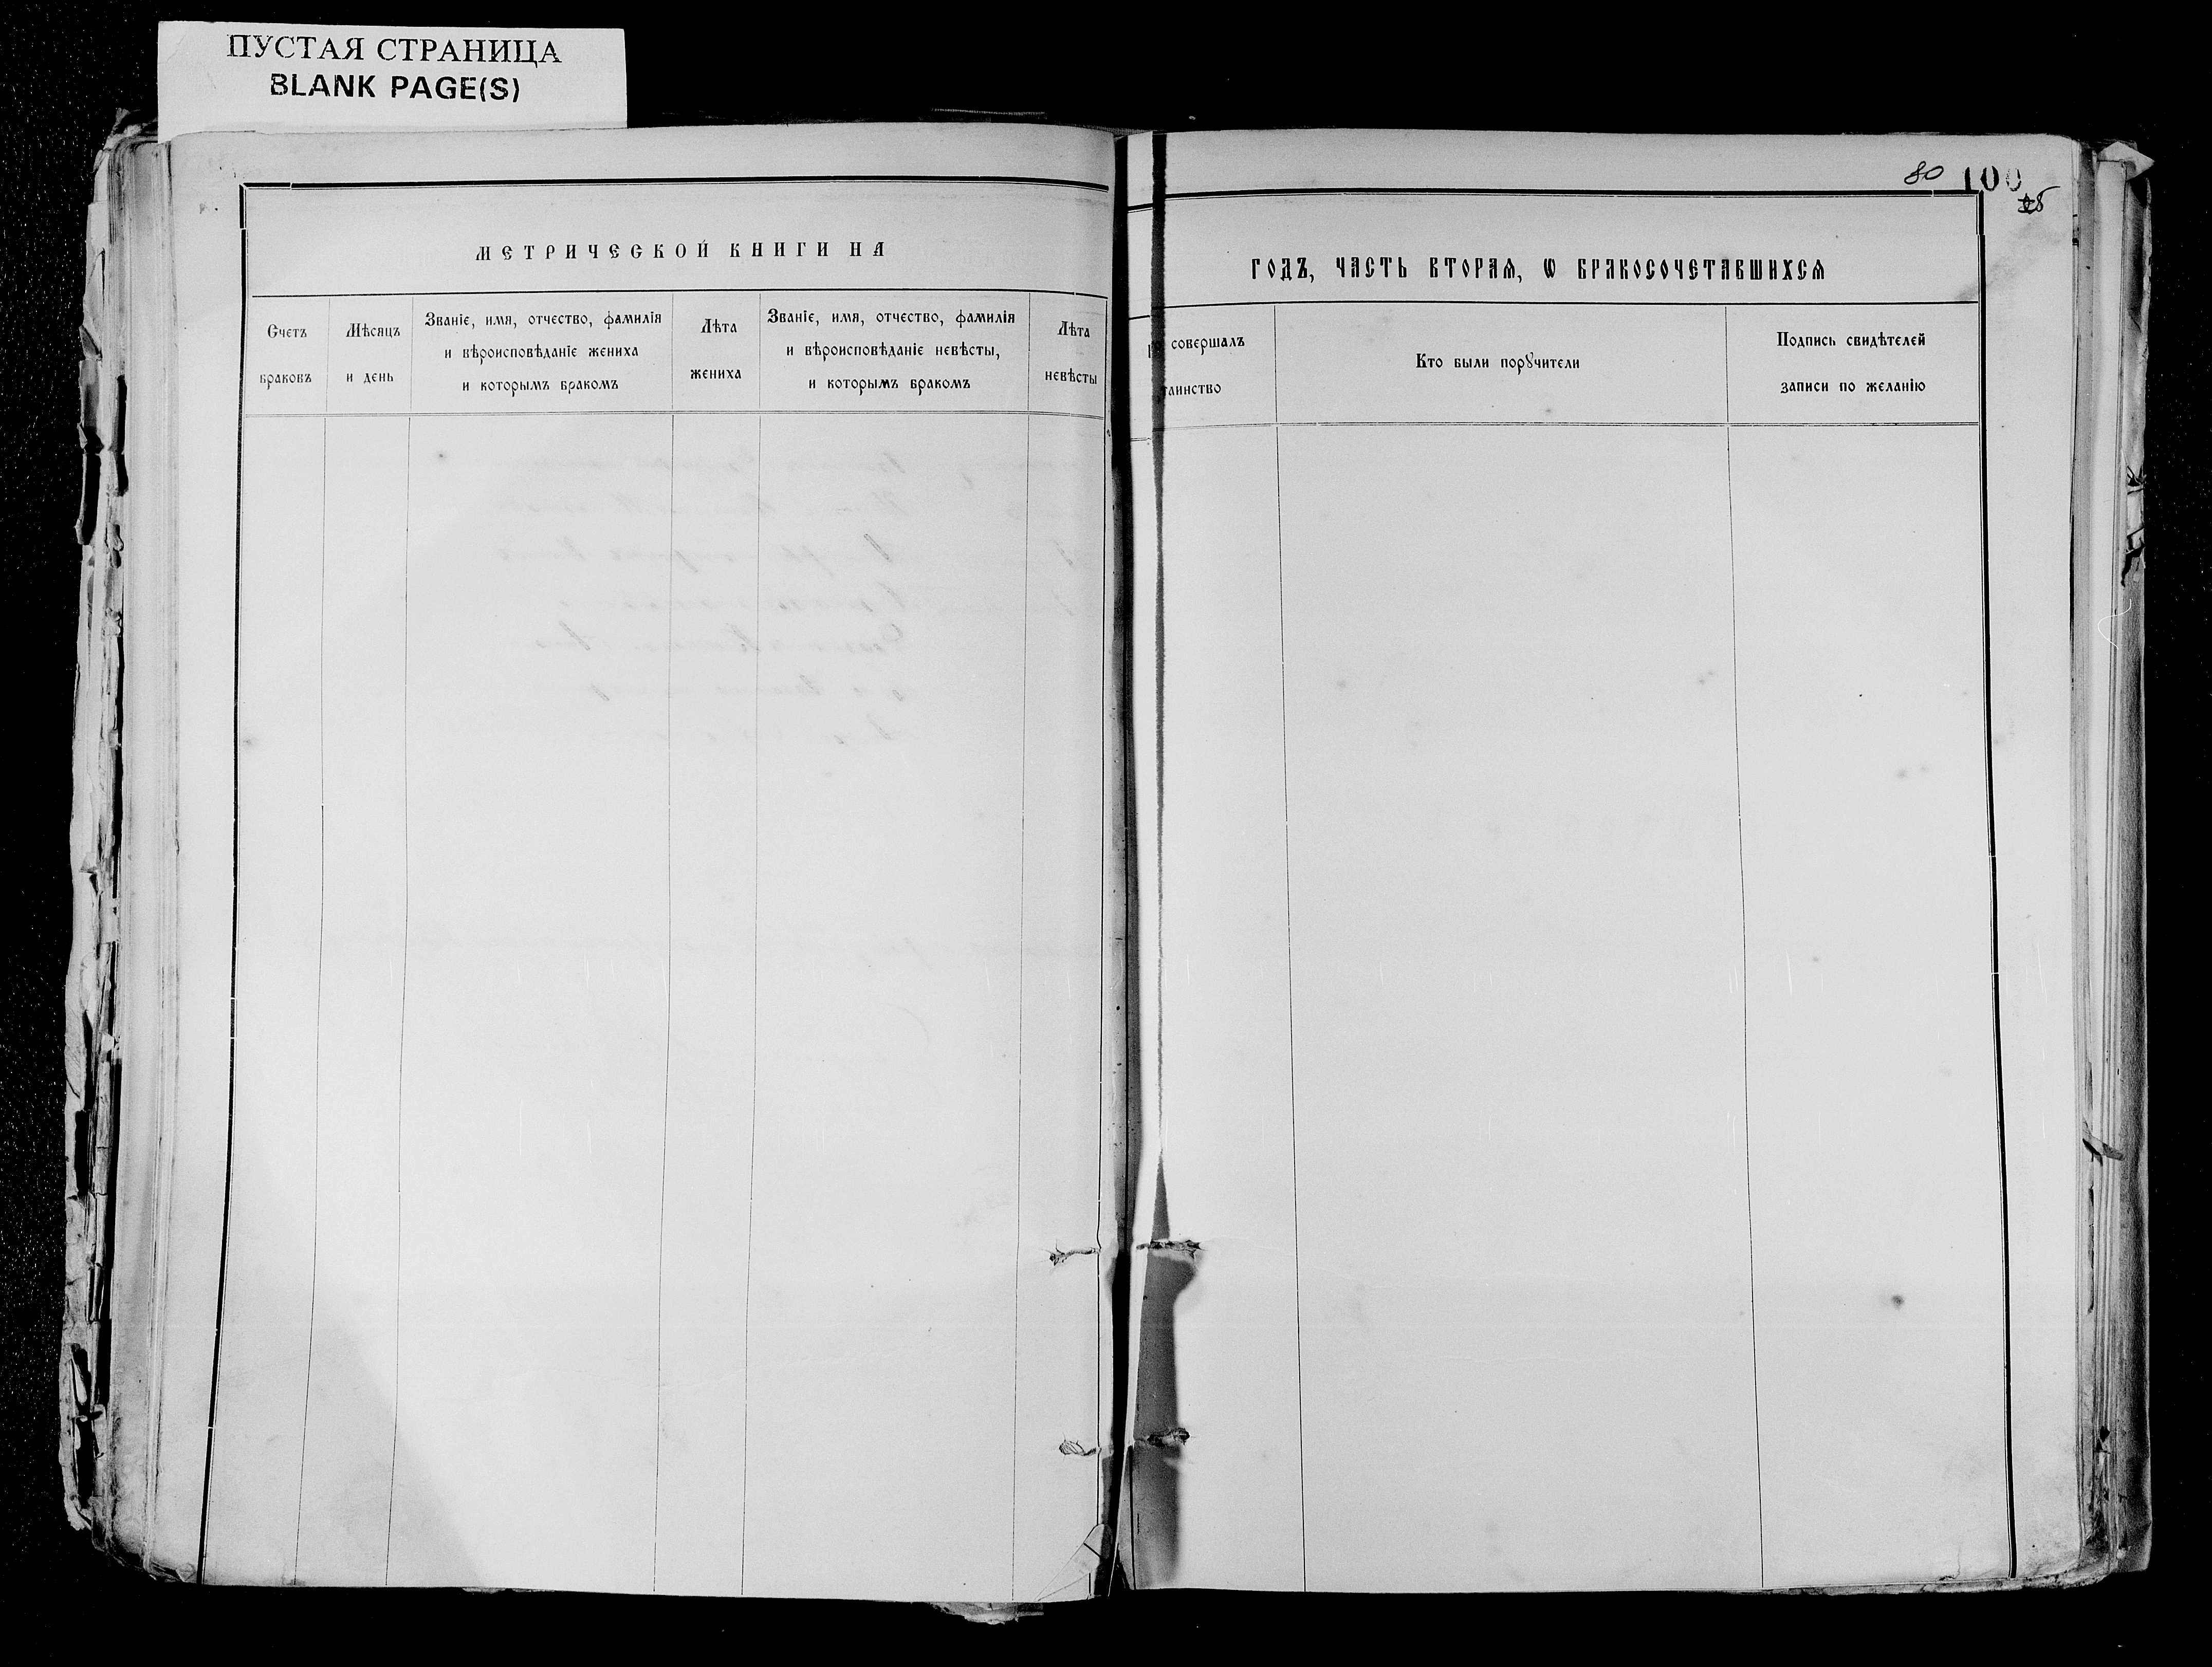 ПУСТАЯ СТРАНИЦА
BLANK PAGE(S)
80 100
МЕТРИЧЕСКОЙ КНИГИ НА
ГОДЪ, ЧАСТЬ ВТОРАѦ, Ѡ БРАКОСОЧЕТАВШИХСѦ
Счетъ
браковъ
Мѣсяцъ
и день
Званіе, имя, отчество, фамилія
и вѣроисповѣданіе жениха
и которымъ бракомъ
Лѣта
жениха
Званіе, имя, отчество, фамилія
и вѣроисповѣданіе невѣсты,
и которымъ бракомъ
Лѣта
невѣсты
совершалъ
таинство
Кто были порꙋчители
Подпись свидѣтелей
записи по желанію